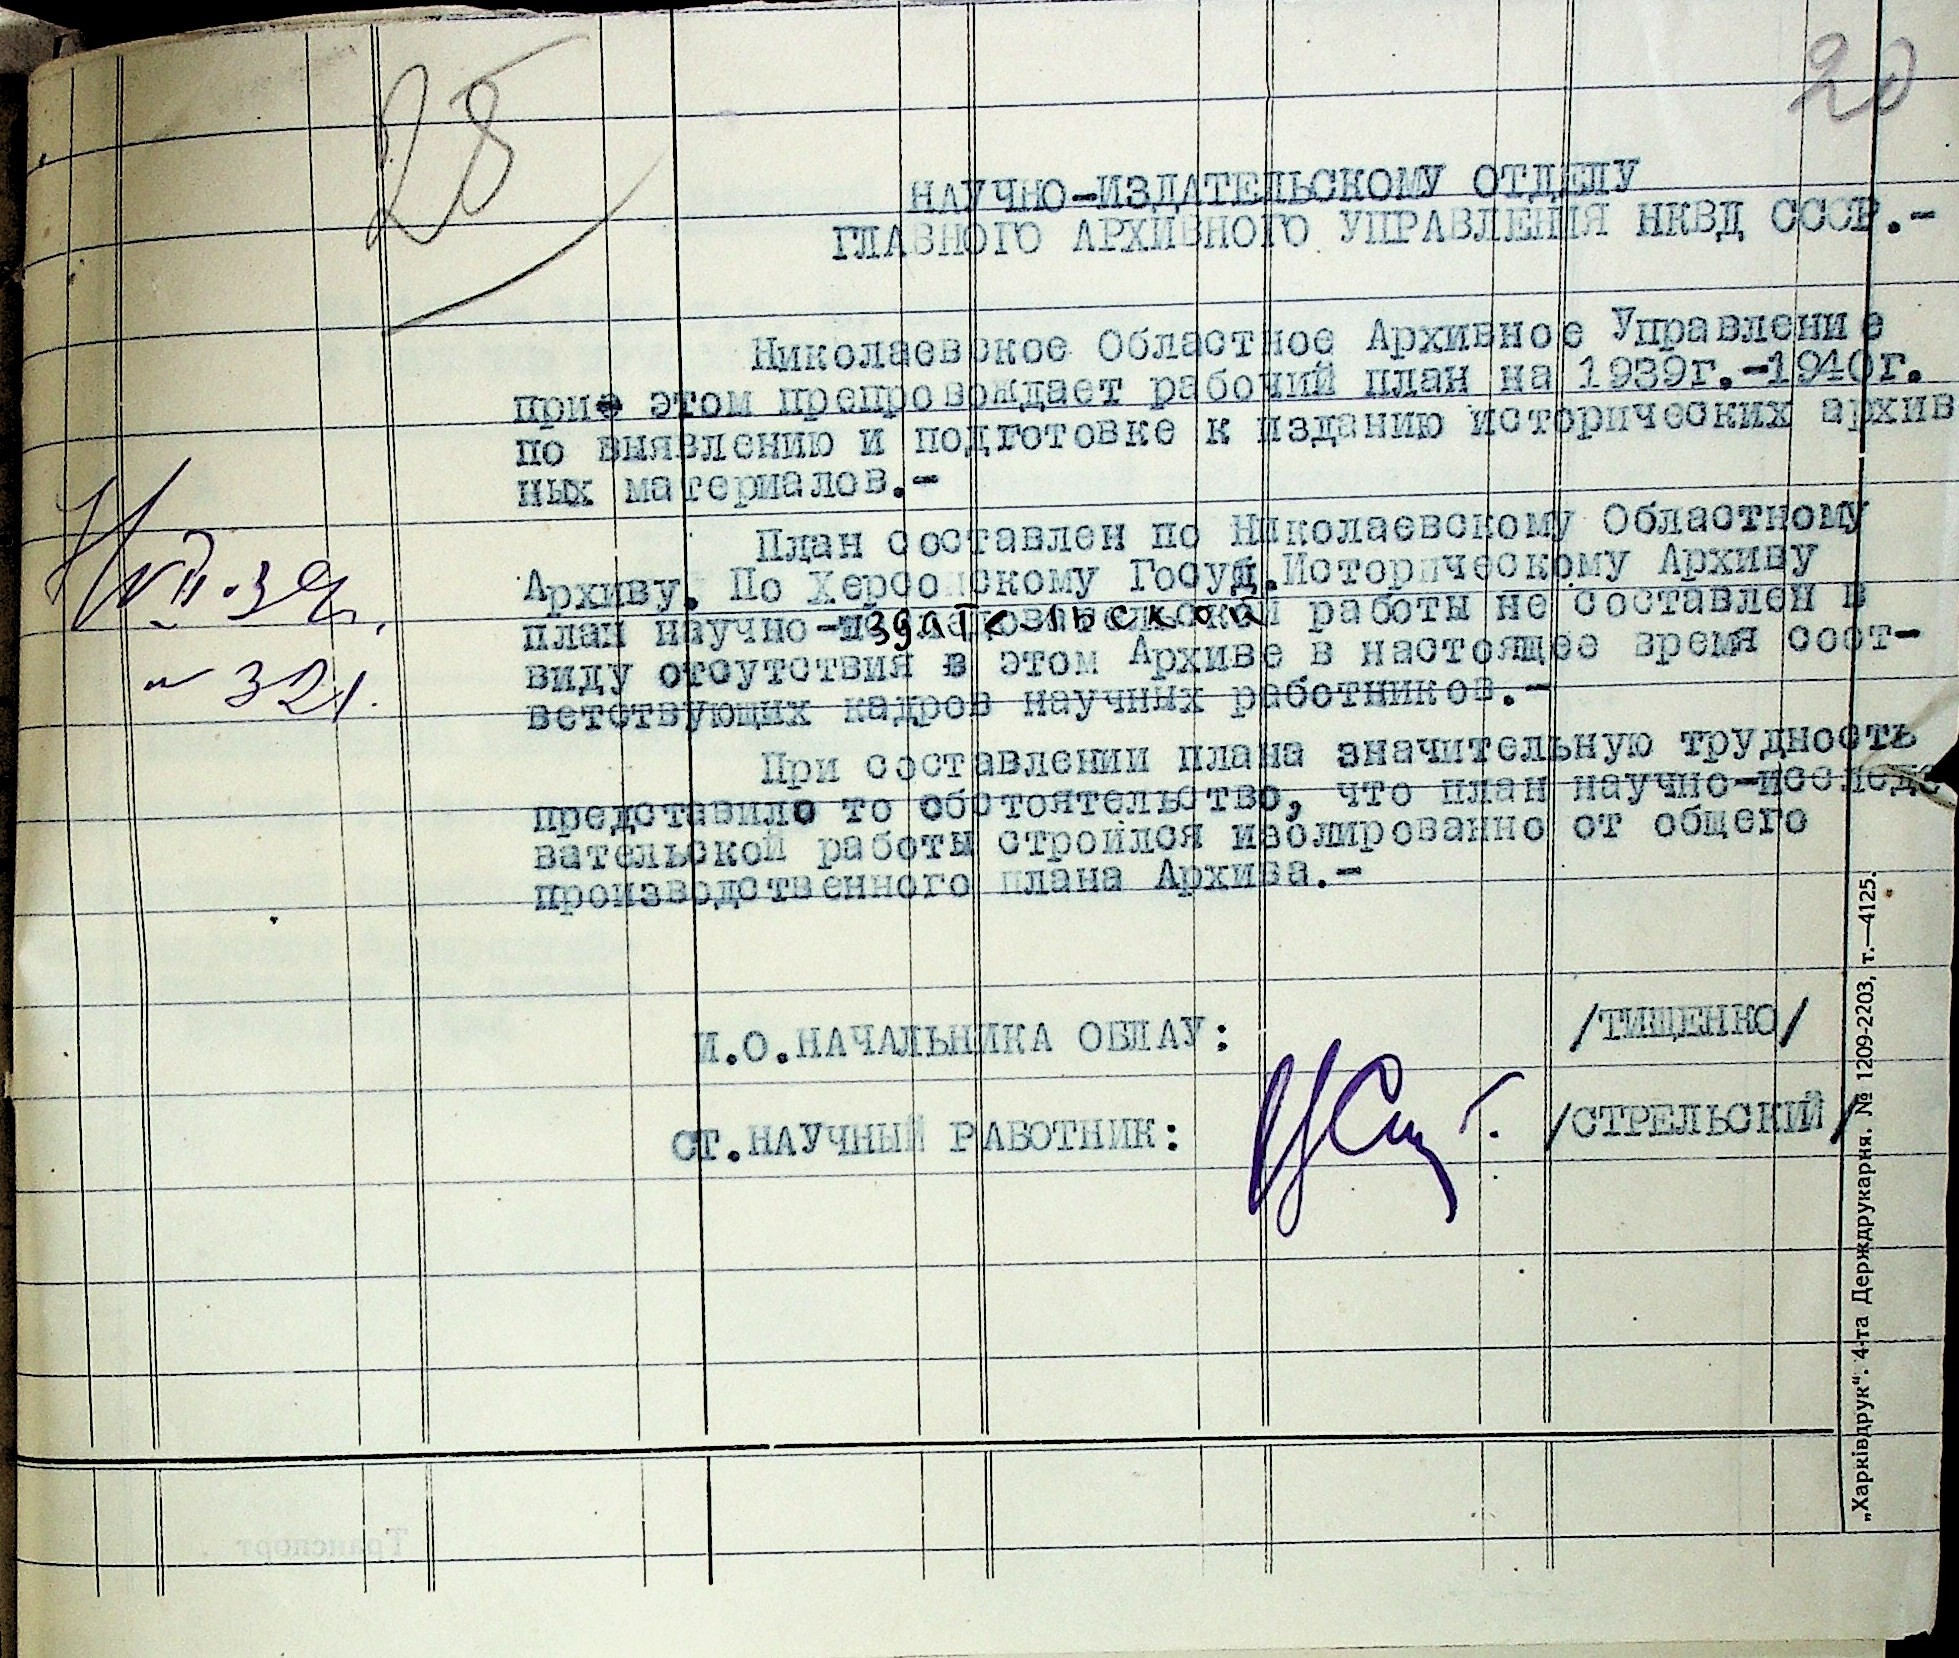 28
20
НАУЧНО-ИЗДАТЕЛЬСКОМУ ОТДЕЛУ
ГЛАВНОГО АРХИВНОГО УПРАВЛЕНИЯ НКВД СССР.-
Николаевское Областное Архивное Управление
при этом препровождает рабочий план на 1939г.-1940г.
по выявлению и подготовке к изданию исторических архив
ных материалов.-
План составлен по Николаевскому Областному
Архиву. По Херсонскому Госуд.Историческому Архиву
план научно-издательской работы не составлен в
виду отсутствия в этом Архиве в настоящее время соот-
ветствующих кадров научных работников.-
При составлении плана значительную трудность
представило то обстоятельство, что план научно-исследо
вательской работы строился изолированно от общего
производственного плана Архива.-
39
№ 321.
И.О.НАЧАЛЬНИКА ОБЛАУ: /ТИЩЕНКО/
СТ.НАУЧНЫЙ РАБОТНИК: /СТРЕЛЬСКИЙ/
„Харківдрук“. 4-та Держдрукарня. № 1209-2203, т.—4125.
Транспорт